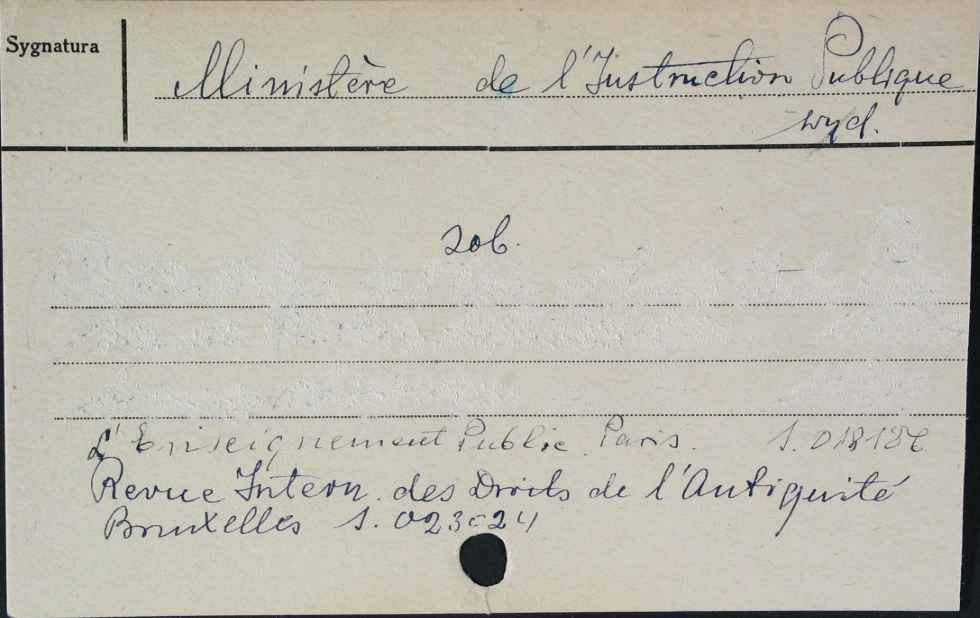 Sygnatura
Ministère de l'Instruction Publique
wyd.
zob.
L'Enseignement Public. Paris. S. 018186
Revue Intern. des Droits de l'Antiquité
Bruxelles S. 023024